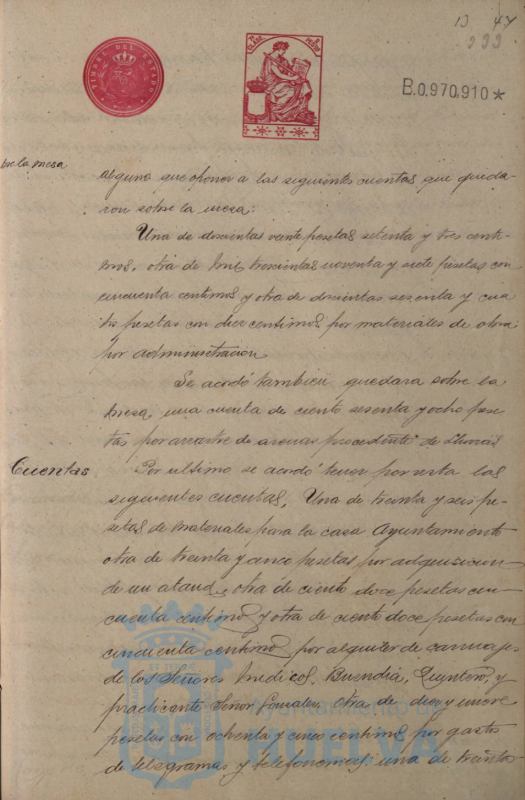 13 47
233
TIMBRE DEL ESTADO
B.0.970.910*
De la mesa
alguna que oponer a las siguientes cuentas que queda-
ron sobre la mesa:
Una de doscientas veinte pesetas setenta y tres centi-
mos, otra de mil trescientas noventa y siete pesetas con
cincuenta centimos y otra de doscientas sesenta y cua
tro pesetas con diez centimos por materiales de obras
por administracion.
Se acordó tambien quedara sobre la
mesa una cuenta de ciento sesenta y ocho pese
tas por arrastre de arenas procedente de
Cuentas
Por ultimo se acordó tener por vista las
siguientes cuentas. Una de treinta y seis pe-
setas de materiales para la casa Ayuntamiento
otra de treinta y cinco pesetas por adquisicion
de un ataud, otra de ciento doce pesetas cin-
cuenta centimos y otra de ciento doce pesetas con
cincuenta centimos por alquiler de carruajes
de los Señores Medicos, Buendia, Quintero, y
practicante Señor Gonzalez, otra de diez y nueve
pesetas con ochenta y cinco centimos por gastos
de telegramas y telefonemas: una de treinta
Ayuntamiento de
HUELVA